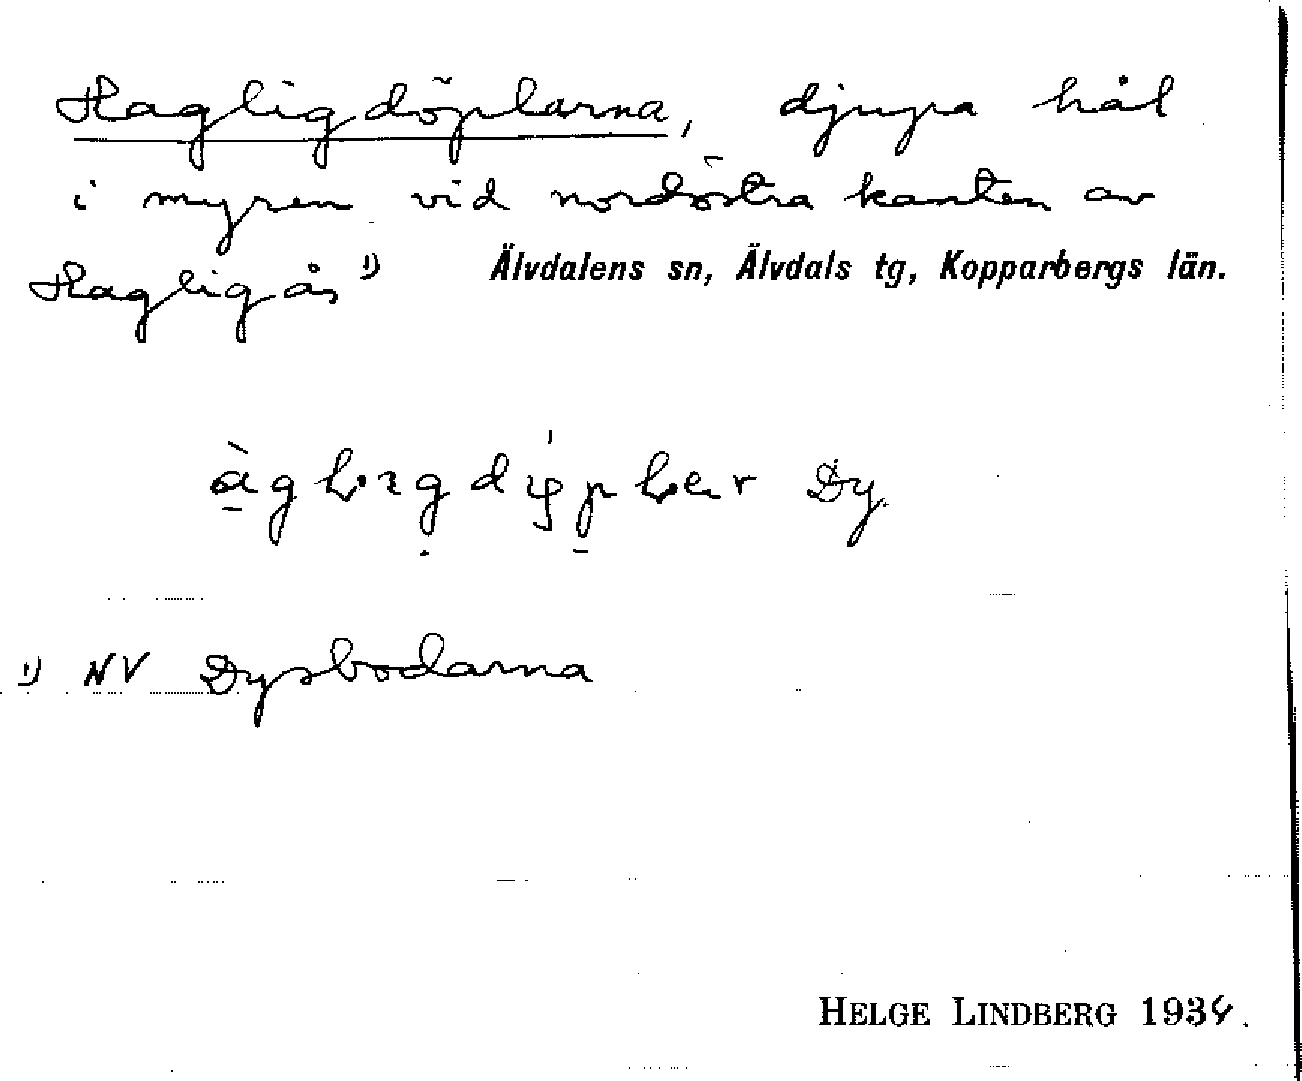 Hagligdöplarna, djupa hål
i myren vid nordöstra kanten av
Hagligås ¹) Älvdalens sn, Älvdals tg, Kopparbergs län.
Dy.
¹) NV Dysbodarna
HELGE LINDBERG 1934.